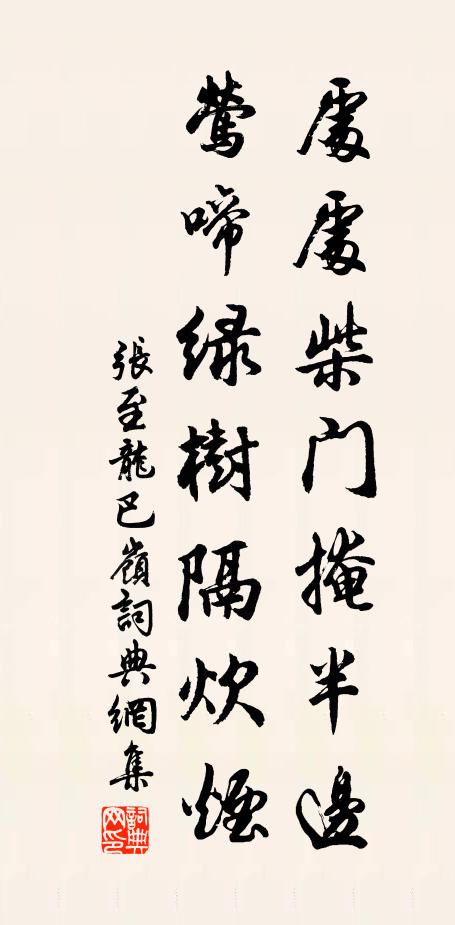 處處柴門掩半邊
鶯啼綠樹隔炊煙
張至龍巴嶺詞典網集
詞典網印